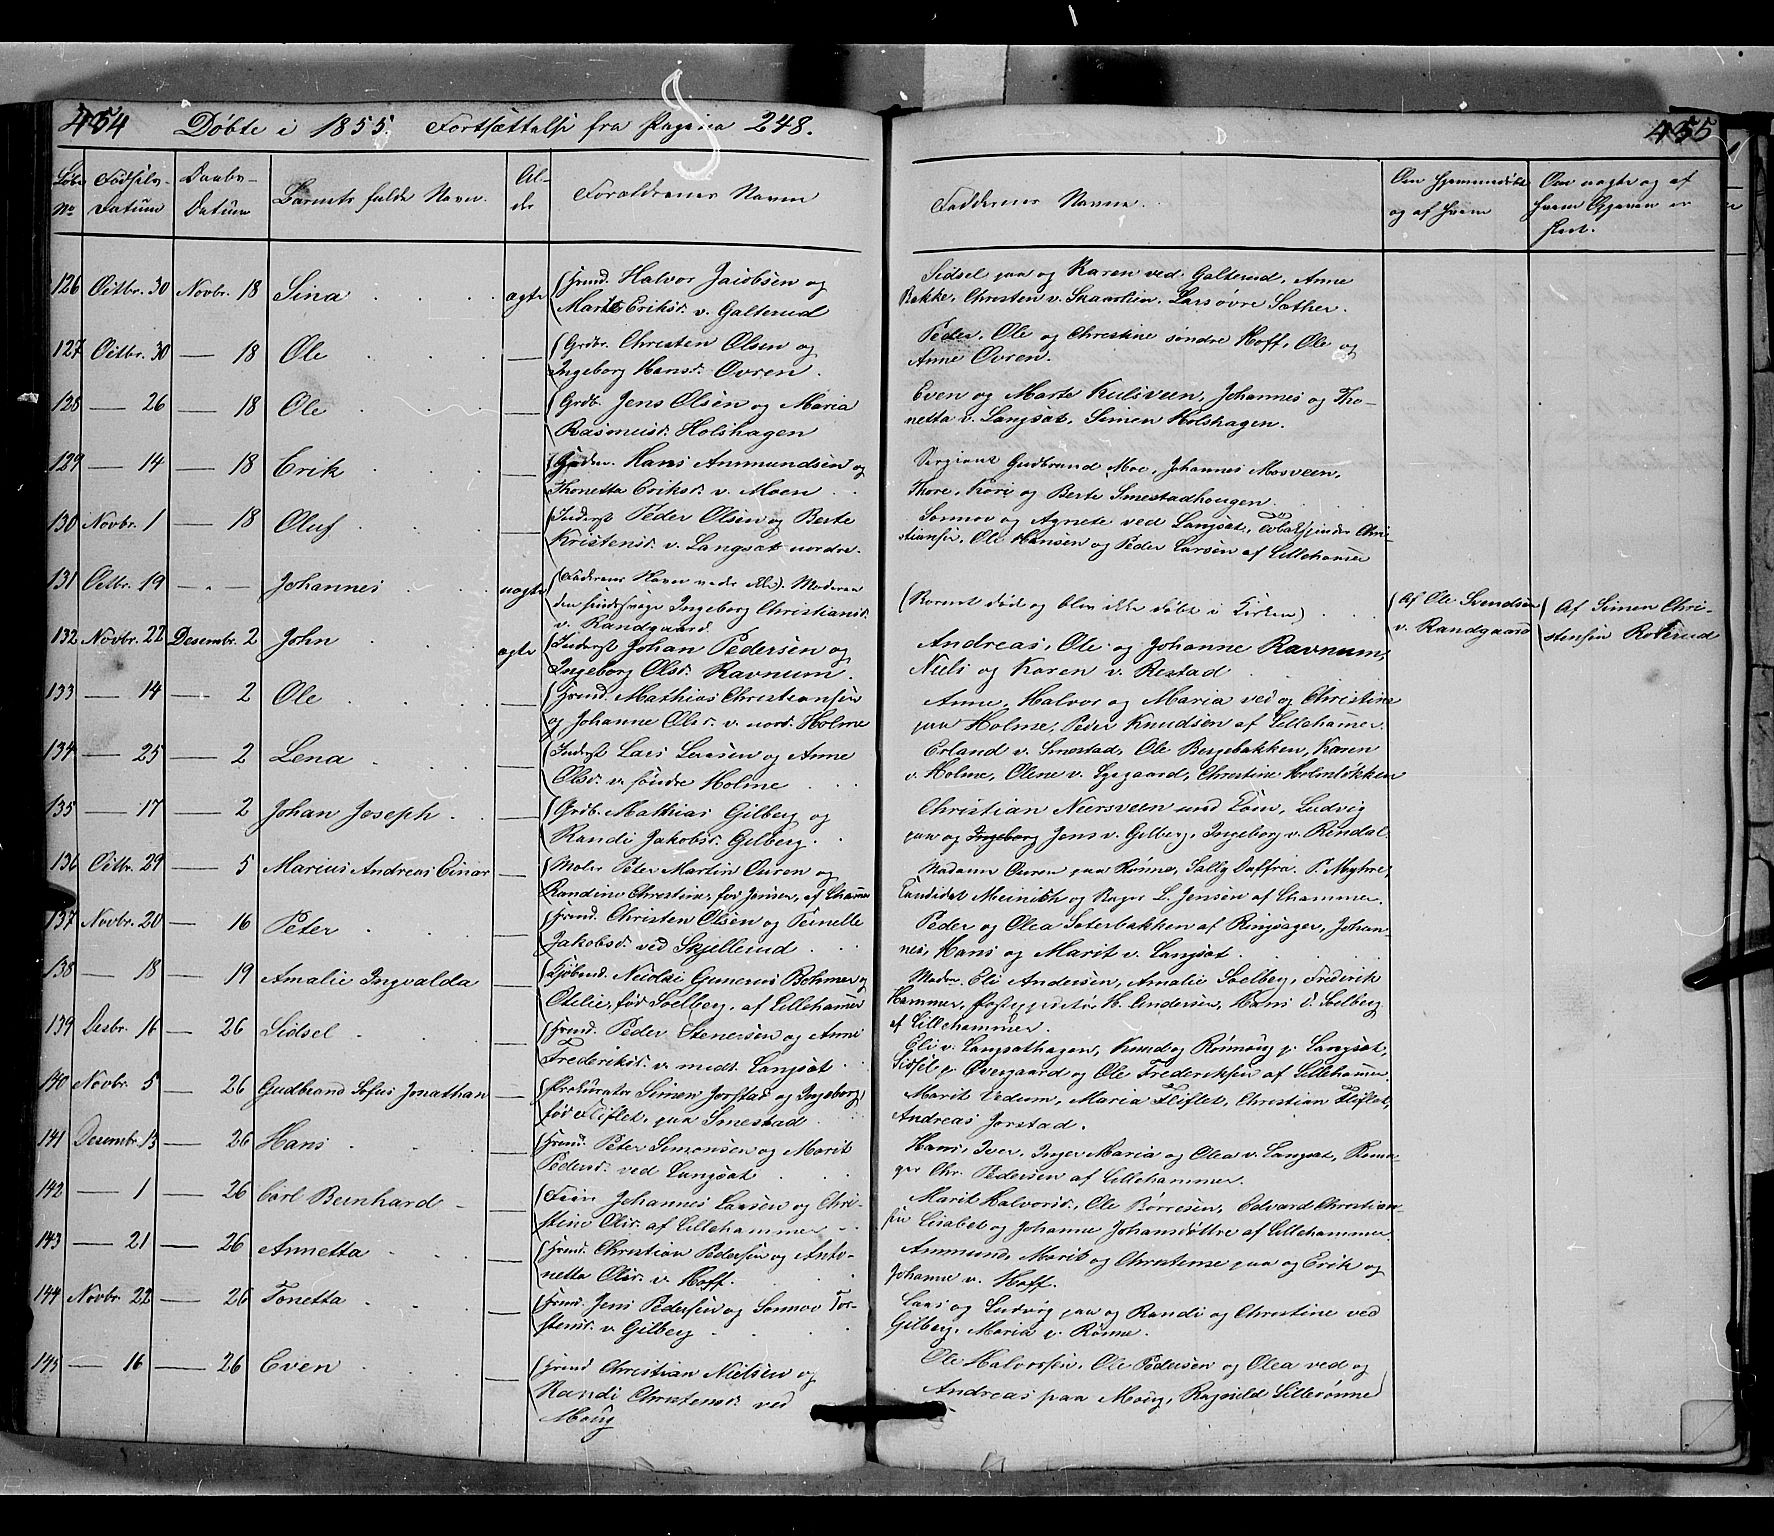 454 Døbte i 1855. Fortsættelse fra Pagina 248.
Løbe No Fødsels-Datum Daabs-Datum Barnets fulde Navn. Al-der Forældrenes Navne
126 Octbr. 30 Novbr. 18 Sina ægte Huusmd. Halvor Jacobsen og
Marte Eriksd. v. Galterud
127 Octbr. 30 — 18 Ole — Grdbr. Christen Olsen og
Ingeborg Hansd. Ovren.
128 — 26 — 18 Ole — Grdb. Jens Olsen og Maria
Rasmusd. Holshagen
129 — 14 — 18 Erik — Hans Ammundsen og
Thonetta Eriksd. v. Moen
130 Novbr. 1 — 18 Oluf — Inderst Peder Olsen og Berte
Kristensd. v. Langsæt nordre.
131 Octbr. 19 — " — Johannes uægte (Faderens Navn vides ikke). Moderen
Ingeborg Christiansd.
v. Randgaard.
132 Novbr. 22 Desembr. 2 John ægte Inderst Johan Pedersen og
Ingeborg Olsd. Ravnum.
133 — 14 — 2 Ole — Huusmd. Mathias Christiansen
og Johanne Olsd. v. nord. Holme
134 — 25 — 2 Lena — Inderst Lars Larsen og Anne
Olsd. v. søndre Holme
135 — 17 — 2 Johan Joseph — Grdb. Mathias Gilberg og
Randi Jakobsd. Gilberg.
136 Octbr. 29 — 5 Marius Andreas Einar — Maler Peter Martin Owren og
Randine Christine, fød Jensen, af Lhammer
137 Novbr. 20 — 16 Peter — Huusmd. Christen Olsen og Pernelle
Jakobsd. ved Skjellerud
138 — 18 — 19 Amalie Ingvalda — Kjøbmd. Nicolai Gunerus Bohmer og
Otelie, fød Solberg, af Lillehammer
139 Desbr. 16 — 26 Sidsel — Huusmd. Peder Stenersen og Anne
Frederiksd. v. mellt. Langsæt
140 Novbr. 5 — 26 Gudbrand Sofus Jonathan — Prokurator Simen Jorstad og Ingeborg,
fød Fliflet, paa Smestad
141 Desembr. 13 — 26 Hans — Huusmd. Peter Simonsen og Marit
Pedersd. ved Langsæt
142 — 1 — 26 Carl Bernhard — Johannes Larsen og Chri-
stine Olsd. af Lillehammer
143 — 21 — 26 Annetta — Huusmd. Christian Pedersen og Anto-
netta Olsd. v. Hoff.
144 Novbr. 22 — 26 Tonetta — Huusmd. Jens Pedersen og Sonnov Tor-
stensd. v. Gilberg
145 — 16 — 26 Even — Huusmd. Christian Nielsen og
Randi Christensd. ved
Moug
455
Faddernes Navne. Om Hjemmedøbt og af hvem Om uægte og af hvem Opgaven er skeet.
Sidsel paa og Karen ved Galterud, Anne
Bakke, Christen v. Skaarlien, Lars øvre Sæther.
Peder, Ole og Christine søndre Hoff, Ole og
Anne Ovren.
Even og Marte Kulsveen, Johannes og Tho-
netta v. Langsæt, Simen Holshagen.
Sergiant Gudbrand Moe, Johannes Mosveen,
Thore, Kari og Berte Smestadhougen.
Sonnov og Agnete ved Langsæt, Chri-
stiansen, Ole Hansen og Peder Larsen af Lillehammer
(Barnet død og blev ikke døbt i Kirken) Af Ole Svendsen
v. Randgaard Af Simen Chri-
stensen Roterud
Andreas, Ole og Johanne Ravnum,
Niels og Karen v. Restad
Anne, Halvor og Maria ved og Christine
paa Holme, Peder Knudsen af Lillehammer.
Erland v. Smestad, Ole Bergebakken, Karen
v. Holme, Olene v. Sygaard, Christine Holmløkken
Christian Neersveen Ludvig
paa og Ingeborg Jens v. Gilberg, Ingeborg v. Rindal
Madame Owren paa Rønne, P. Myhre,
Candidat Meinich og Bager L. Jensen af Lhammer.
Peder og Olea Sæterbakken af Ringsager, Johan-
nes, Hans og Marit v. Langsæt.
Madm. Eli Andersen, Amalie Solberg, Frederik
Hammer, H. Andersen, Hans Solberg
af Lillehammer.
Eli v. Langsæthagen, Knud og Rønnoug p. Langsæt,
Sidsel p. Overgaard og Ole Frederiksen af Lillehammer.
Marit Maria Fliflet, Christian Fliflet,
Andreas Jorstad.
Hans, Iver, Inger Maria og Olea v. Langsæt,
Chr. Pedersen af Lillehammer.
Marit Halvorsd., Ole Børresen, Edvard Christian-
sen Lisabet og Johanne Johansdøttre af Lillehammer.
Ammund, Marit og Christense paa og Erik og
Johanne v. Hoff.
Lars og Ludvig paa og Randi og Christine ved
Gilberg, Maria v. Rønne.
Ole Halvorsen, Ole Pedersen og Olea ved og
Andreas paa Moug, Ragnild Lillerønne